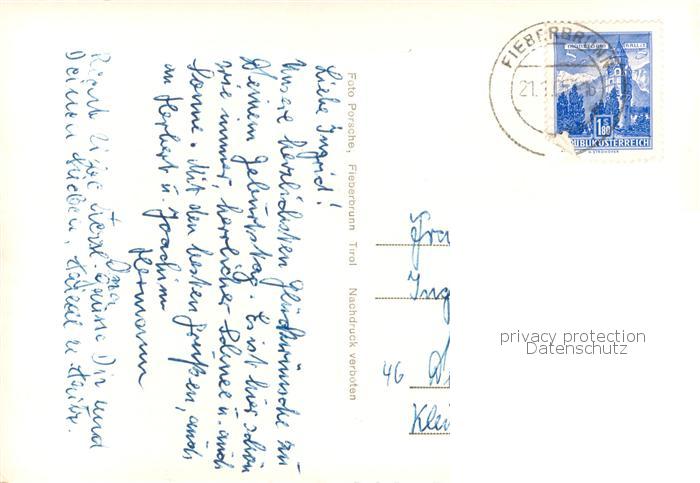 Liebe Ingrid!
Unsere herzlichsten Glückwünsche zu
Deinem Geburtstag. Es ist hier schön
wie immer, herrlicher Schnee u. auch
Sonne. Mit den besten Grüßen, auch
an Herbert u. Joachim
Hermann
Oma
Recht liebe Grüße Dir und
Deinen Lieben,
Foto Porsche, Fieberbrunn Tirol Nachdruck verboten
FIEBERBRUNN
21.1
1.80
REPUBLIK ÖSTERREICH
Fra
Ing
46
Klei
privacy protection
Datenschutz